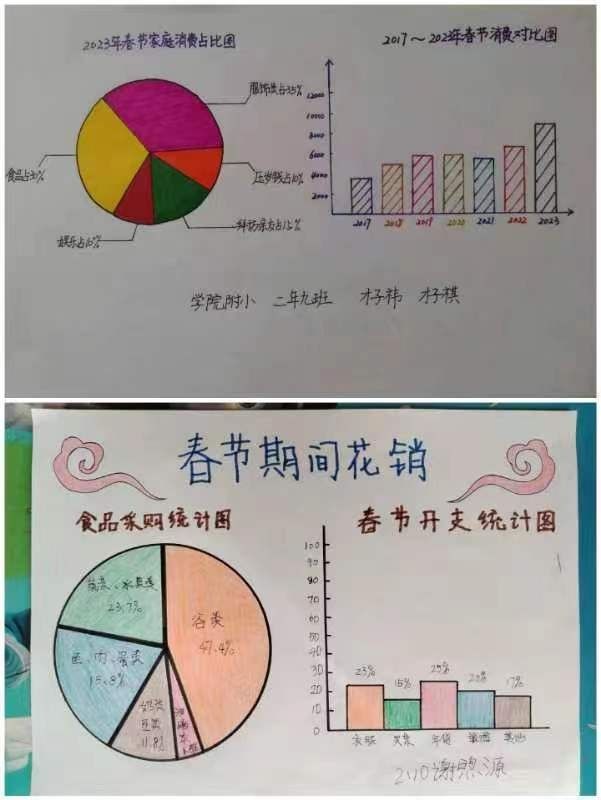 2023年春节家庭消费占比图
服饰类占35%
食品占30%
压岁钱占10%
娱乐占10%
科技绿友占15%
2017～2023年春节消费对比图
12000
10000
8000
6000
4000
2000
2017
2018
2019
2020
2021
2022
2023
学院附小 二年九班
春节期间花销
食品采购统计图
蔬菜、水果类
23.7%
谷类
47.4%
鱼、肉、蛋类
15.8%
奶类
豆类
11.8%
春节开支统计图
100
90
80
70
60
50
40
30
20
10
0
23%
15%
25%
20%
17%
衣服
买菜
年货
其他
2110谢煦源